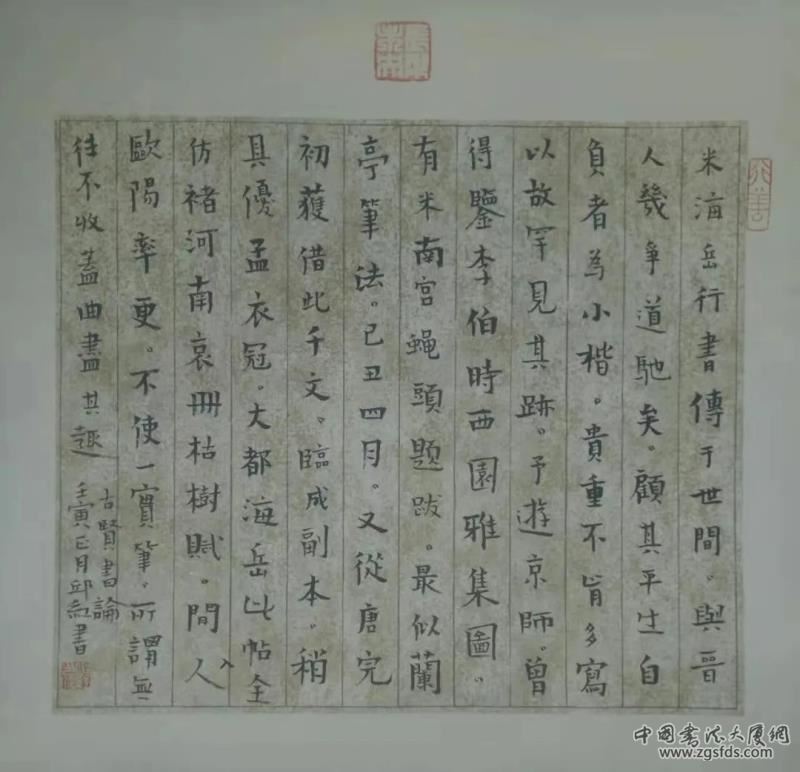 米海岳行書傳于世間。與晉
人幾爭道馳矣。顧其平生自
負者為小楷。貴重不肯多寫
以故罕見其跡。予遊京師。曾
得鑒李伯時西園雅集圖。
有米南宮蝇頭題跋。最似蘭
亭筆法。已丑四月。又從唐完
初獲借此千文。臨成副本。稍
具優孟衣冠。大都海岳此帖全
仿褚河南哀冊枯樹賦。間入
歐陽率更。不使一實筆。所謂無
往不收蓋曲盡其趣
古賢書論
壬寅正月邱紅書
中國書法大廈網
www.zgsfds.com